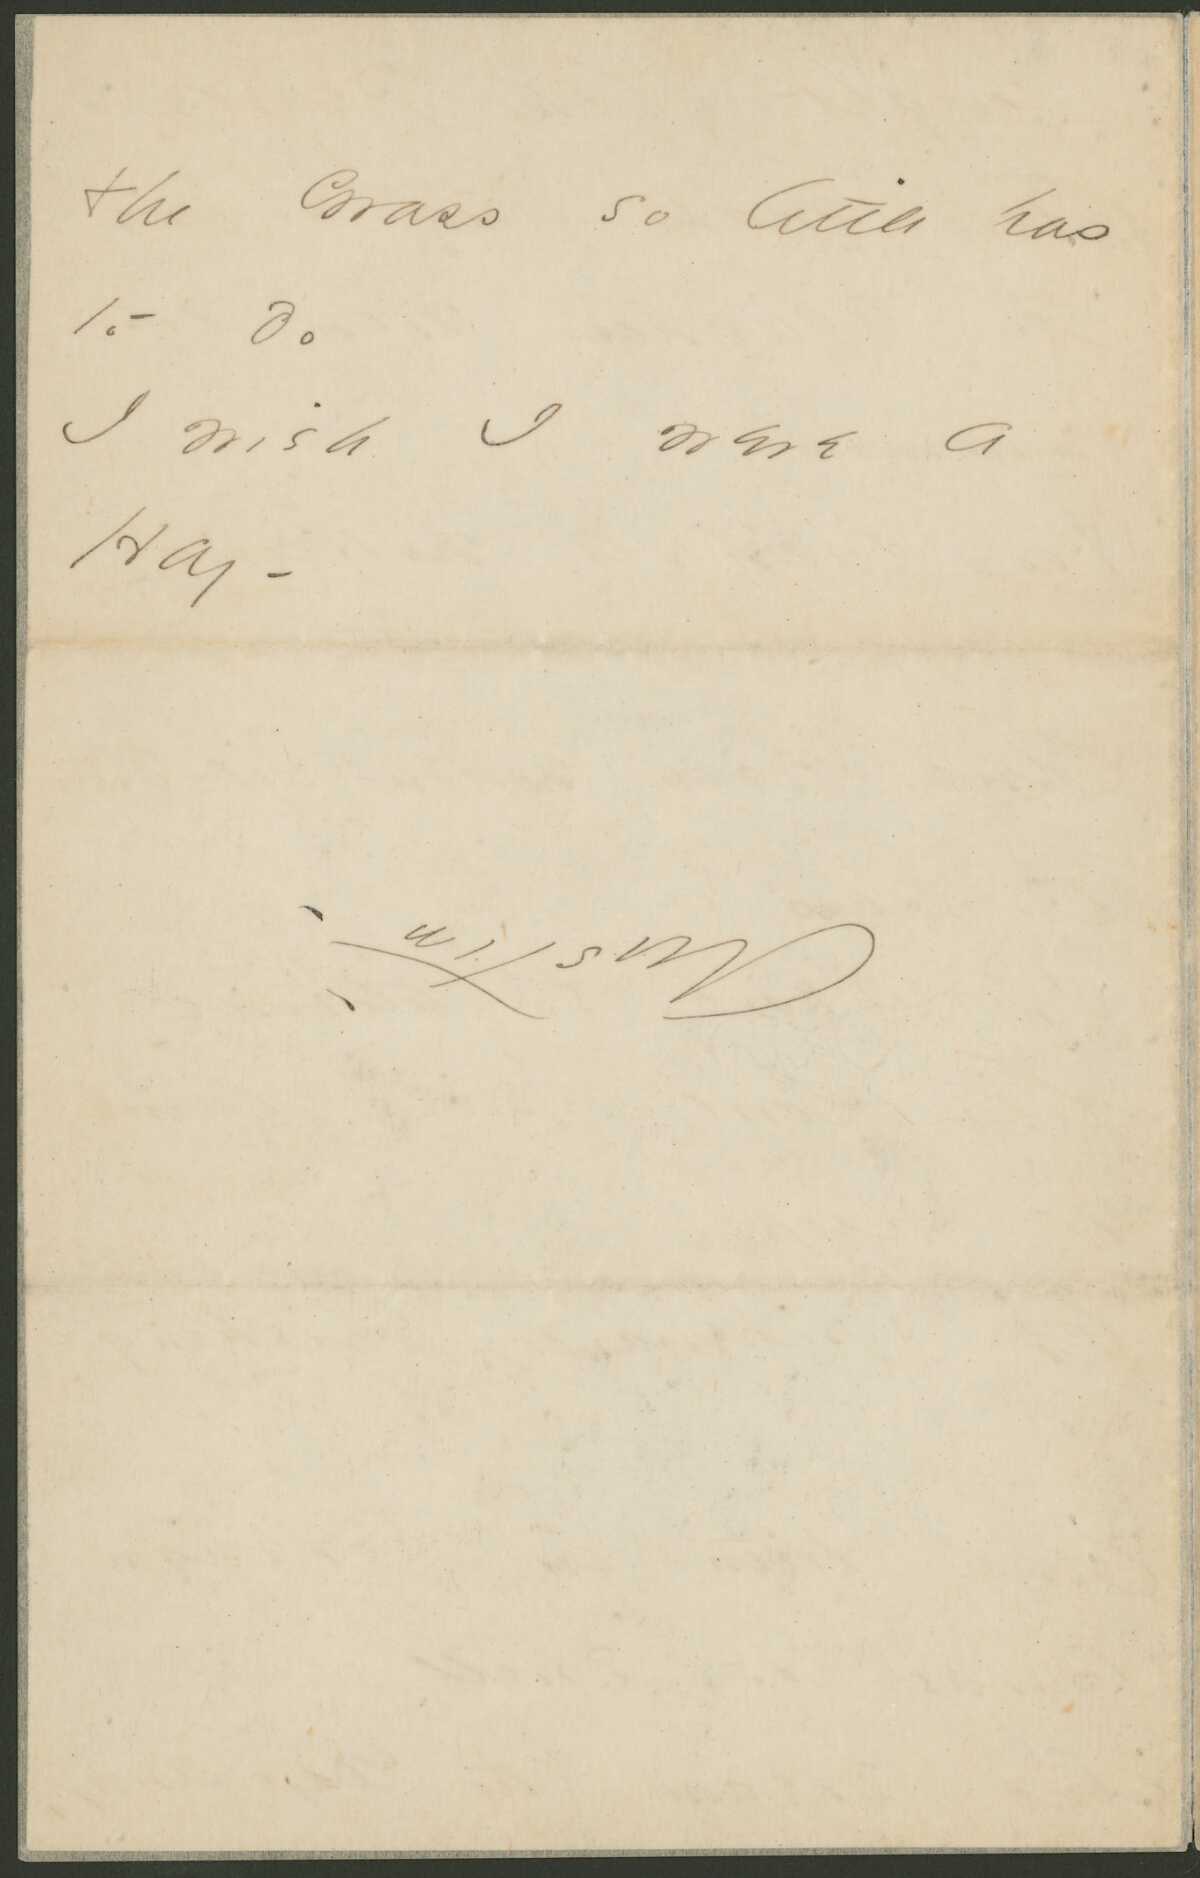 the Grass so little has
to do
I wish I were a
Hay –
Austin